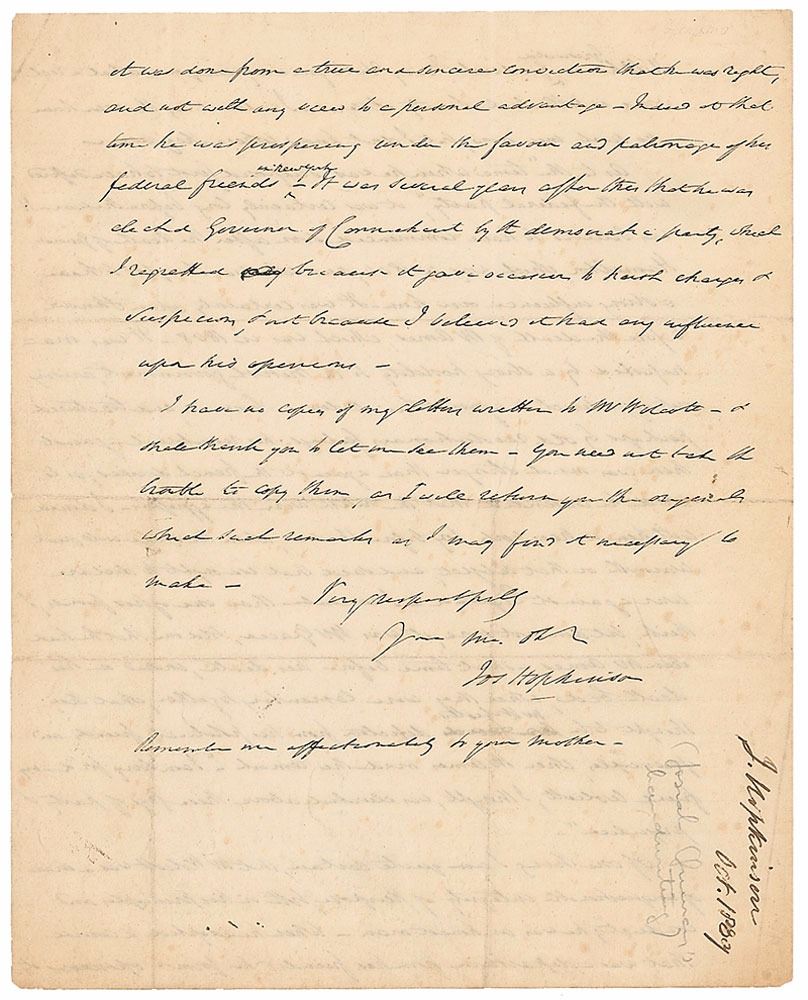 it was done from a true and sincere conviction that he was right,
and not with any view to a personal advantage – Indeed at that
time he was prospering under the favour and patronage of his
in New York
federal friends – It was several years after this that he was
elected Governor of Connecticut by the democratic party, which
I regretted only because it gave occasion to harsh charges &
suspicions, & not because I believed it had any influence
upon his opinions –
I have no copies of my letters written to Mr Wolcott – &
shall thank you to let me see them – You need not take the
trouble to copy them, as I will return you the originals
which such remarks as I may find it necessary to
make –
Very respectfully
Your
Jos Hopkinson
Remember me affectionately to your mother –
J. Hopkinson
Oct. 1839
(Josiah Quincy's
handwriting)